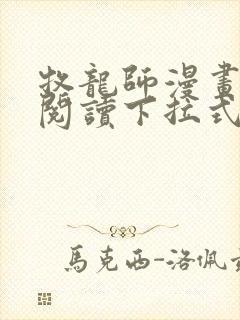 牧龍師漫畫
閱讀下拉式
馬克西-洛佩